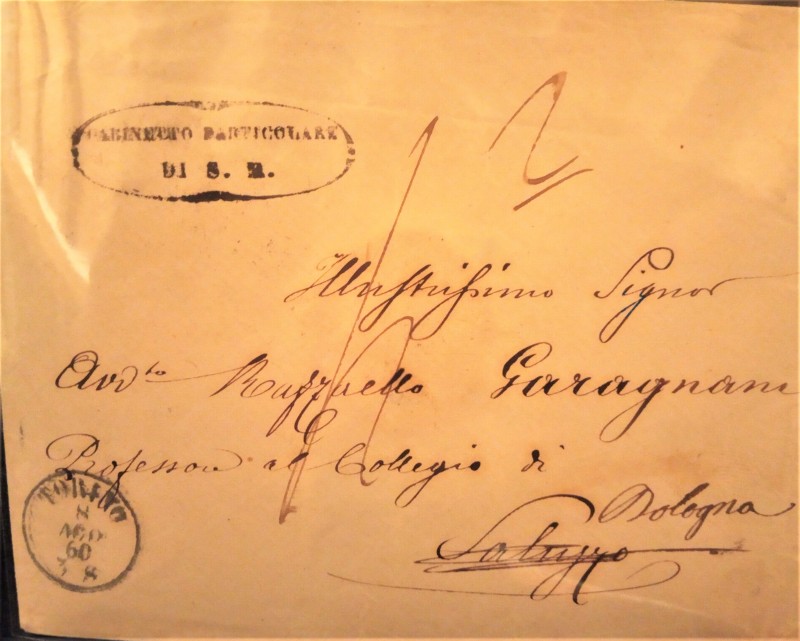 GABINETTO PARTICOLARE
DI S. M.
2
Illustrissimo Signor
Avv.to Raffaello Garagnani
Professore al Collegio di
Bologna
Saluzzo
TORINO
8
AGO
60
8